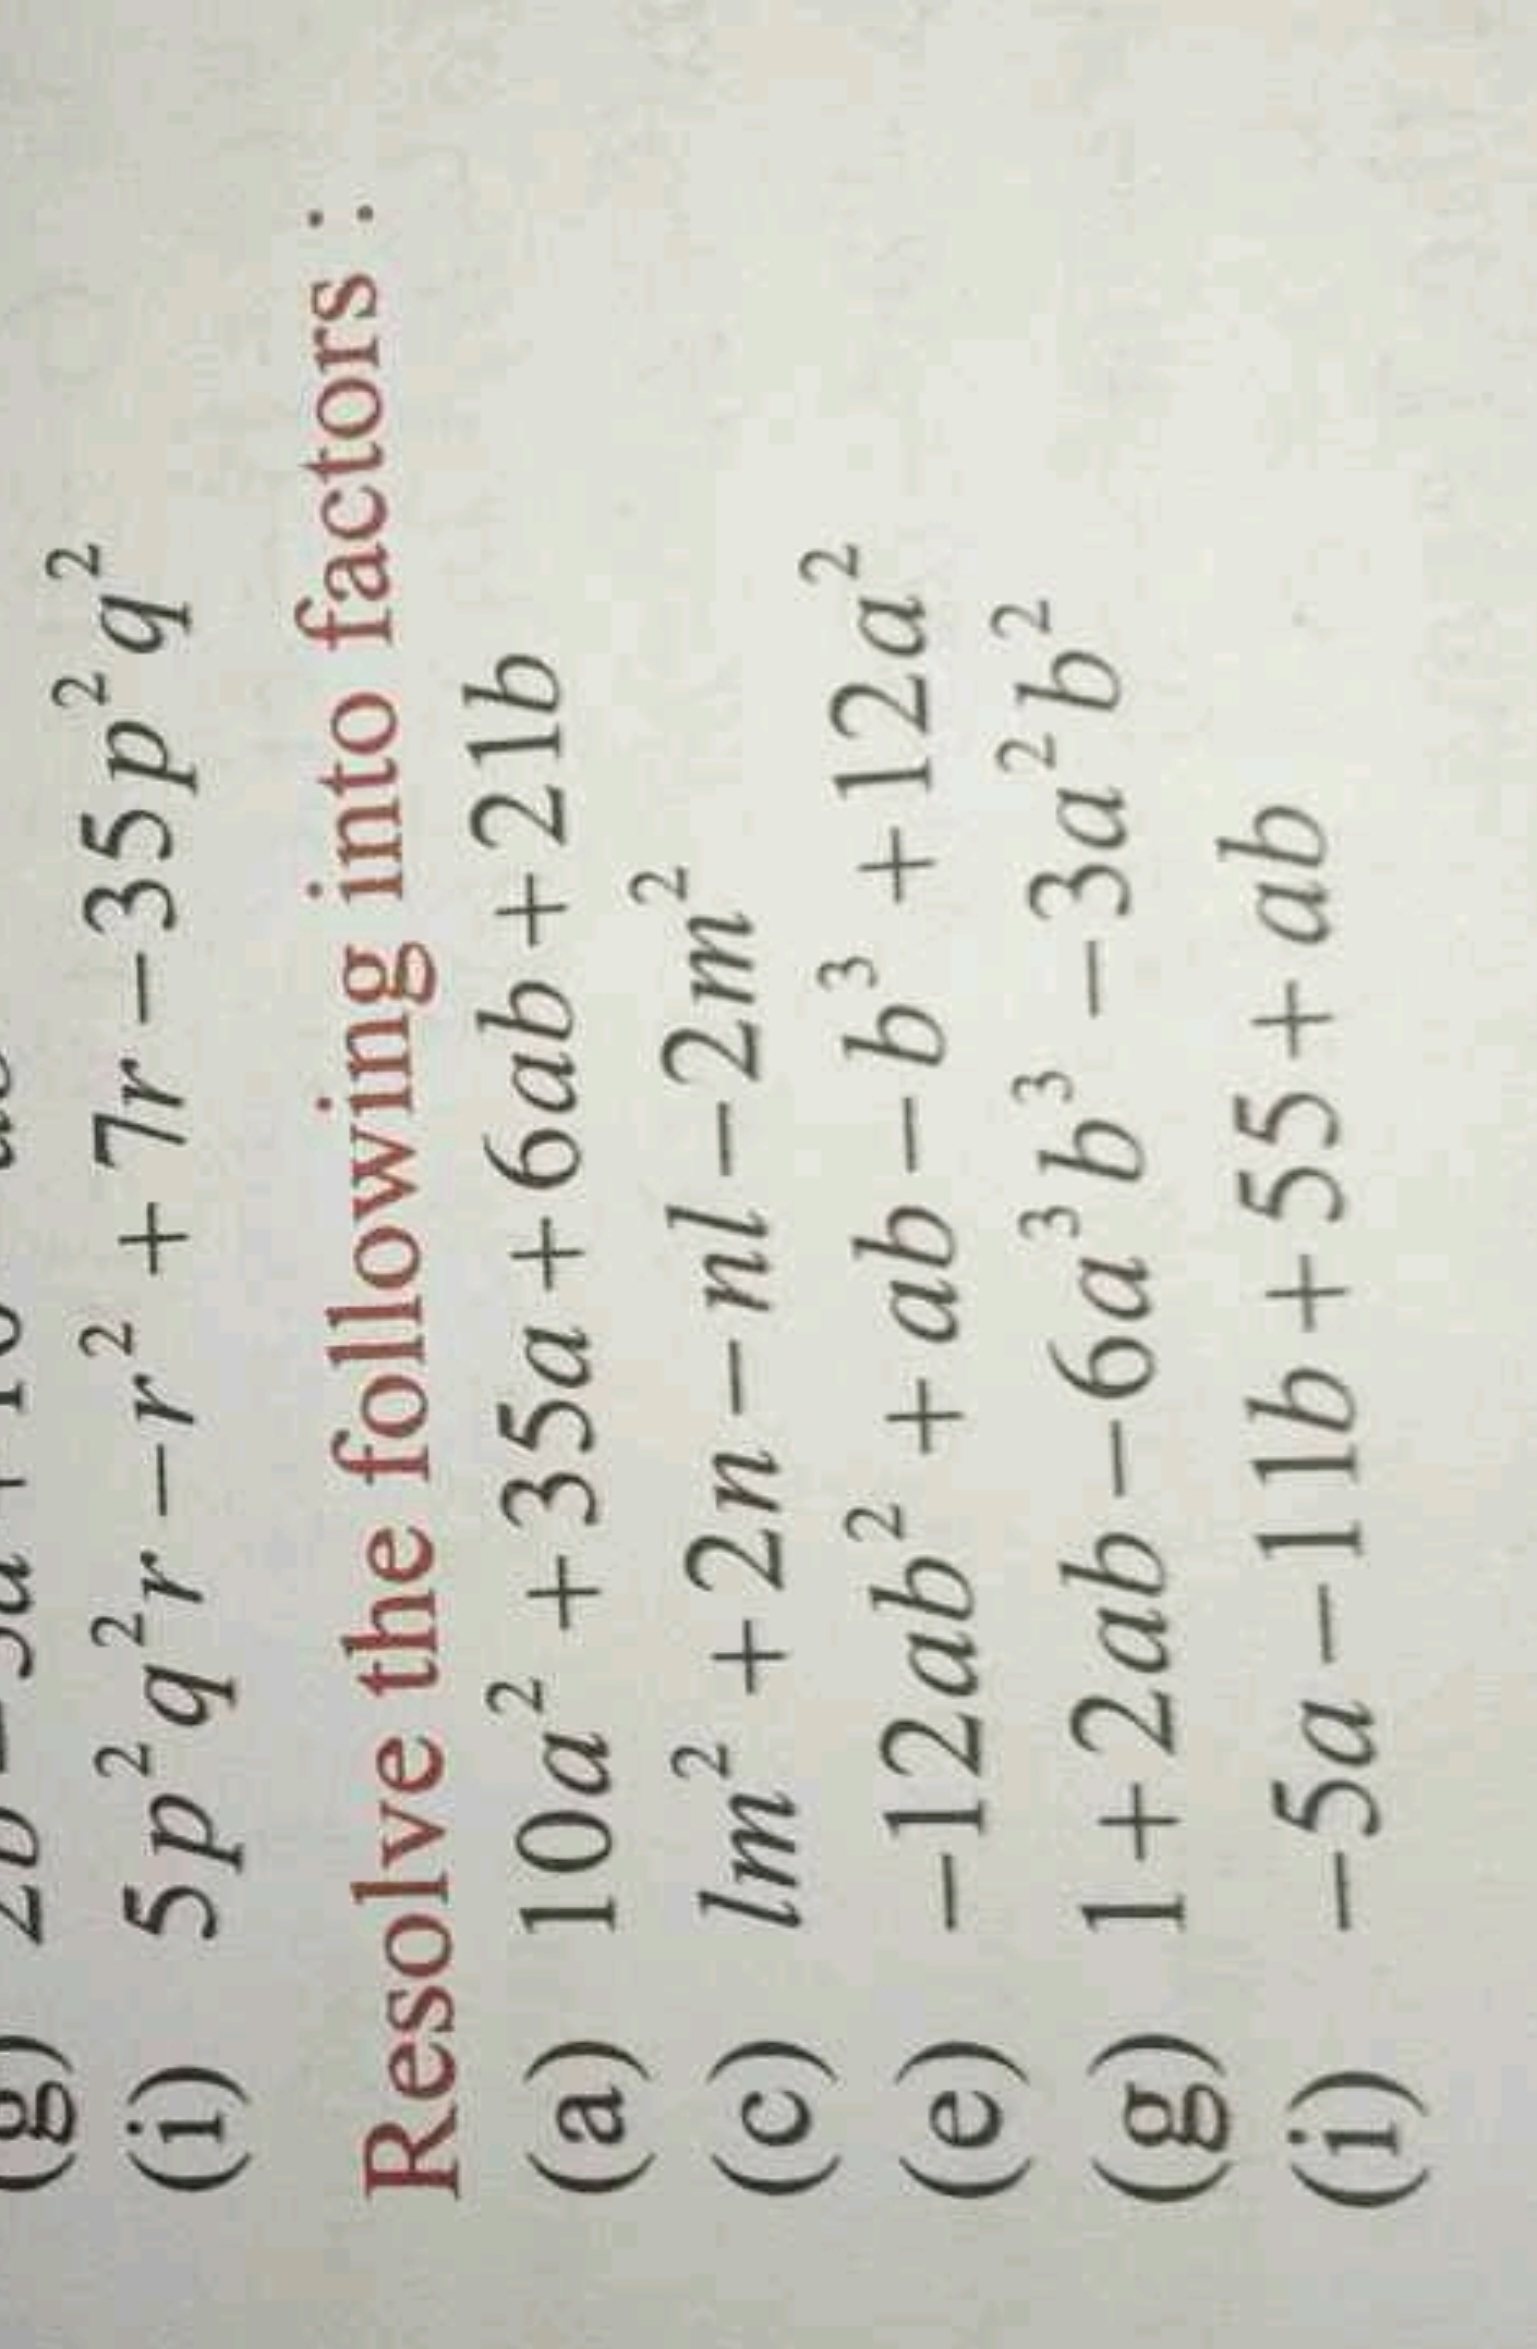 (i) 5p²q²r − r² + 7r − 35p²q²
Resolve the following into factors :
(a) 10a² + 35a + 6ab + 21b
(c) lm² + 2n − nl − 2m²
(e) −12ab² + ab − b³ + 12a²
(g) 1 + 2ab − 6a³b³ − 3a²b²
(i) −5a − 11b + 55 + ab